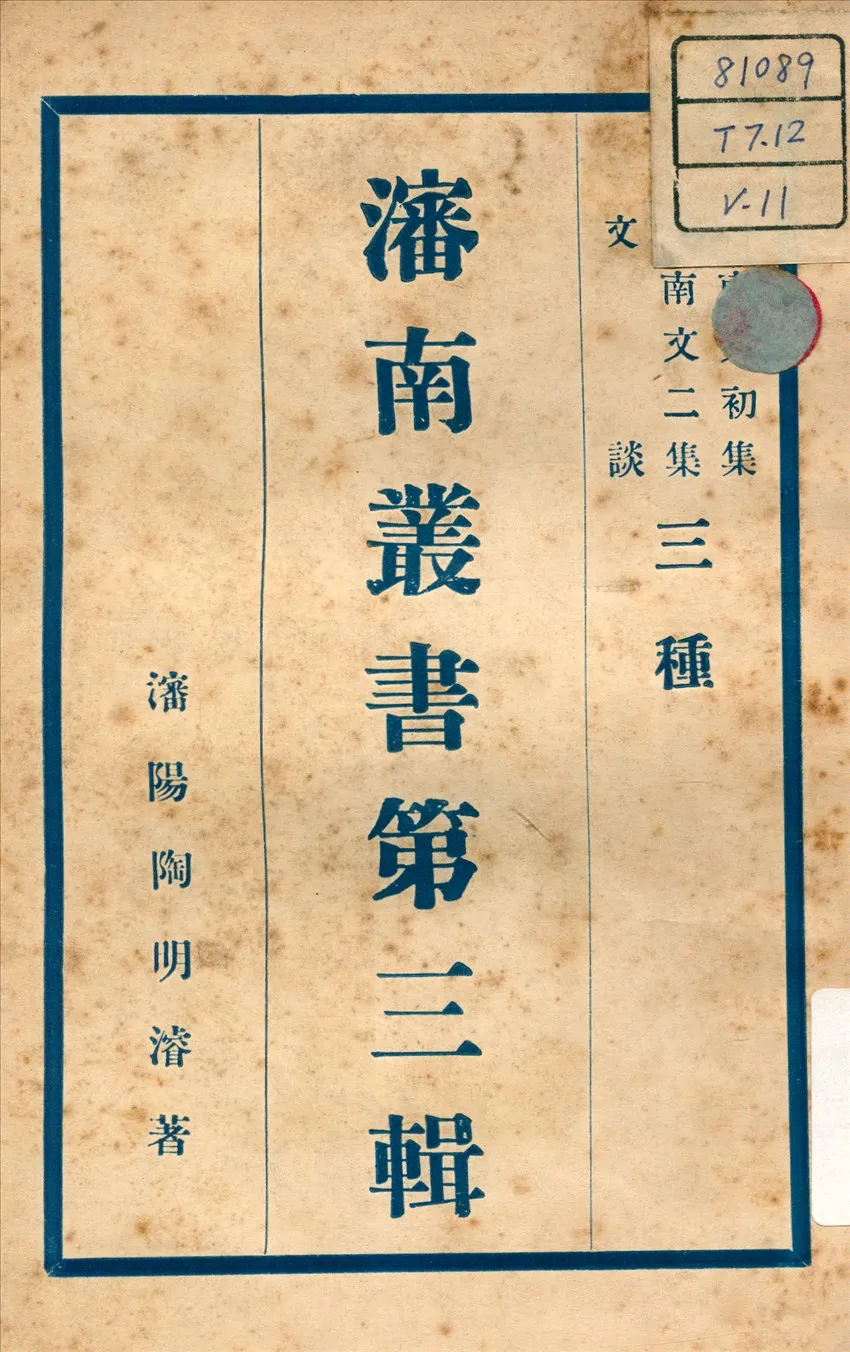 81089
T 7.12
V-11
初集
南文二集
文談
三種
瀋南叢書第三輯
瀋陽陶明濬著